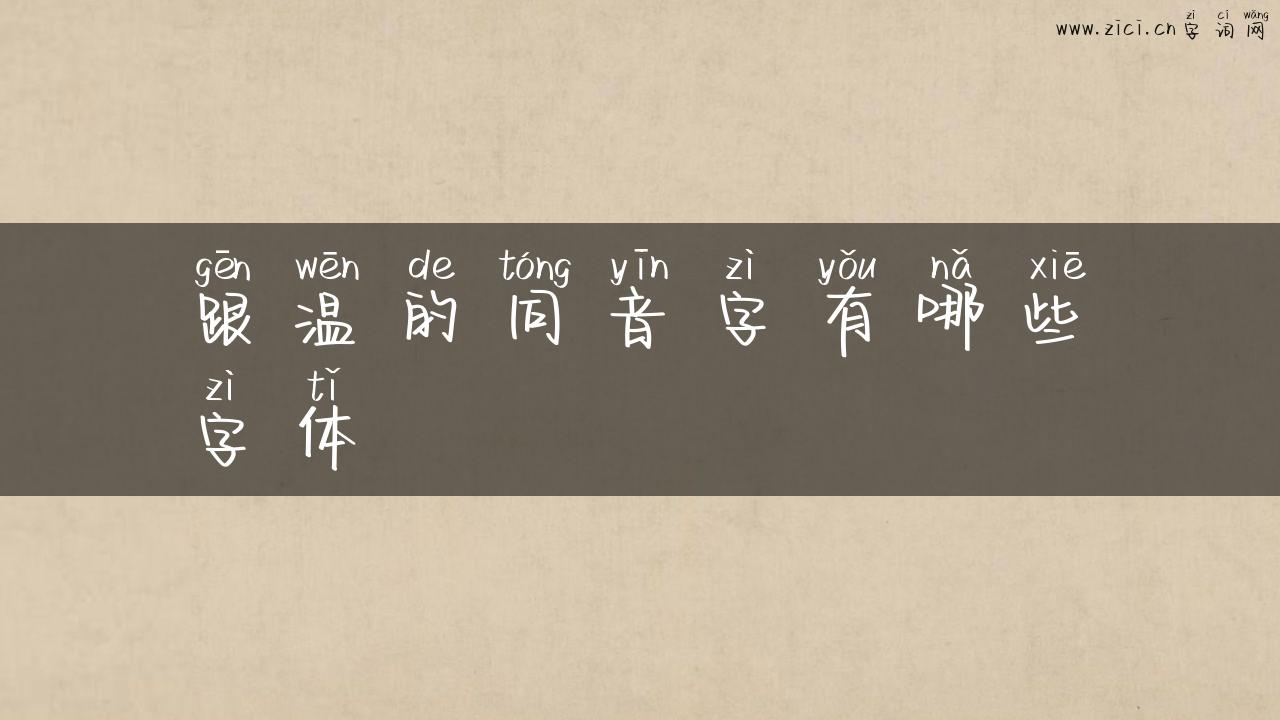 zì cí wǎng
www.zici.cn 字词网
gēn wēn de tóng yīn zì yǒu nǎ xiē
跟温的同音字有哪些
zì tǐ
字体